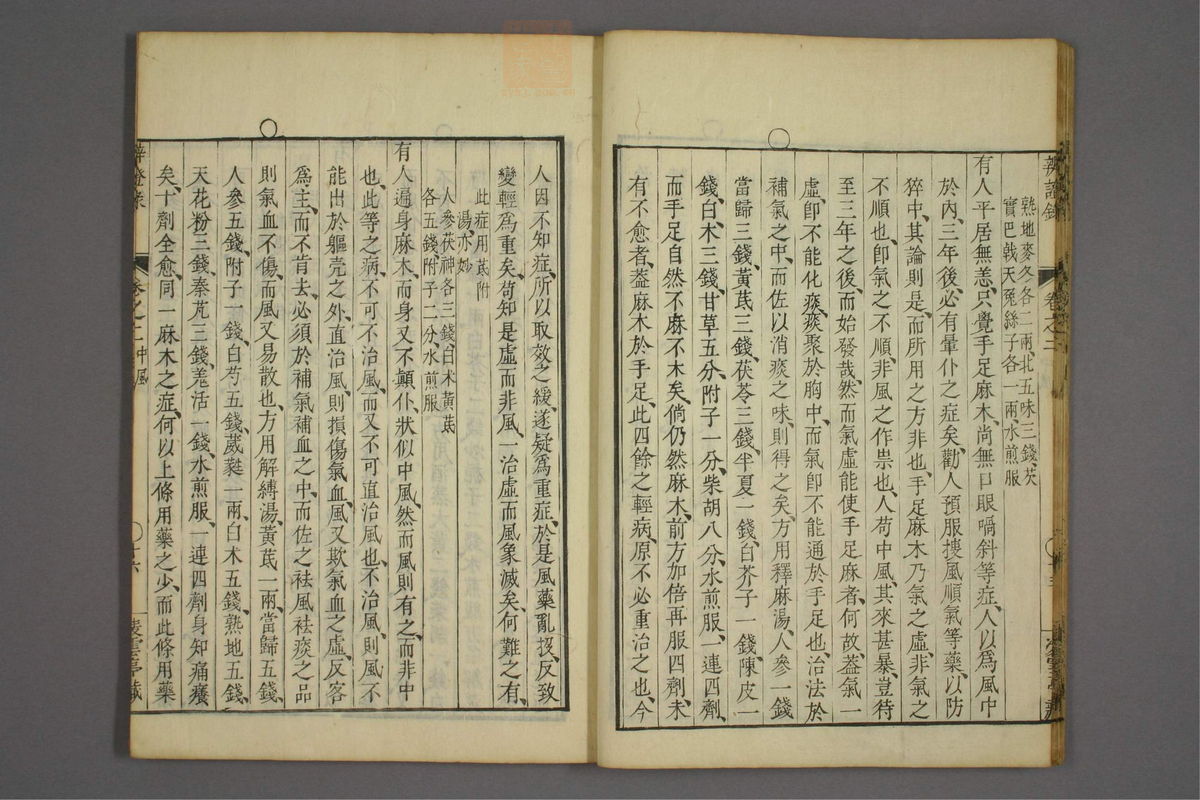 辨證錄
卷之二
熟地麥冬各二兩、北五味三錢、茨
實巴戟天兔絲子各一兩、水煎服
有人平居無恙、只覺手足麻木、尚無口眼喎斜等症、人以爲風中
於內、三年後、必有暈仆之症矣、勸人預服搜風順氣等藥、以防
猝中、其論則是、而所用之方非也、手足麻木乃氣之虛、非氣之
不順也、卽氣之不順、非風之作祟也、人苟中風、其來甚暴、豈待
至三年之後、而始發哉、然而氣虛能使手足麻者、何故、葢氣一
虛、卽不能化痰、痰聚於胸中、而氣卽不能通於手足也、治法於
補氣之中、而佐以消痰之味、則得之矣、方用釋麻湯、人參一錢
當歸三錢、黃茋三錢、茯苓三錢、半夏一錢、白芥子一錢、陳皮一
錢、白术三錢、甘草五分、附子一分、柴胡八分、水煎服、一連四劑、
而手足自然不麻不木矣、倘仍然麻木、前方加倍再服四劑、未
有不愈者、葢麻木於手足、此四餘之輕病、原不必重治之也、今
人因不知症、所以取效之緩、遂疑爲重症、於是風藥亂投、反致
變輕爲重矣、苟知是虛而非風、一治虛而風象滅矣、何難之有、
此症用茋附
湯亦妙
人參茯神各三錢、白术黃茋
各五錢、附子二分、水煎服
有人遍身麻木、而身又不顛仆、狀似中風、然而風則有之、而非中
也、此等之病、不可不治風、而又不可直治風也、不治風、則風不
能出於軀壳之外、直治風則損傷氣血、風又欺氣血之虛、反客
爲主、而不肯去、必須於補氣補血之中、而佐之袪風袪痰之品
則氣血不傷、而風又易散也、方用解縛湯、黃茋一兩、當歸五錢、
人參五錢、附子一錢、白芍五錢、葳蕤一兩、白木五錢、熟地五錢、
天花粉三錢、秦艽三錢、羌活一錢、水煎服、一連四劑、身知痛癢
矣、十劑全愈、同一麻木之症、何以上條用藥之少、而此條用藥
辨證錄
卷之二中風
十六